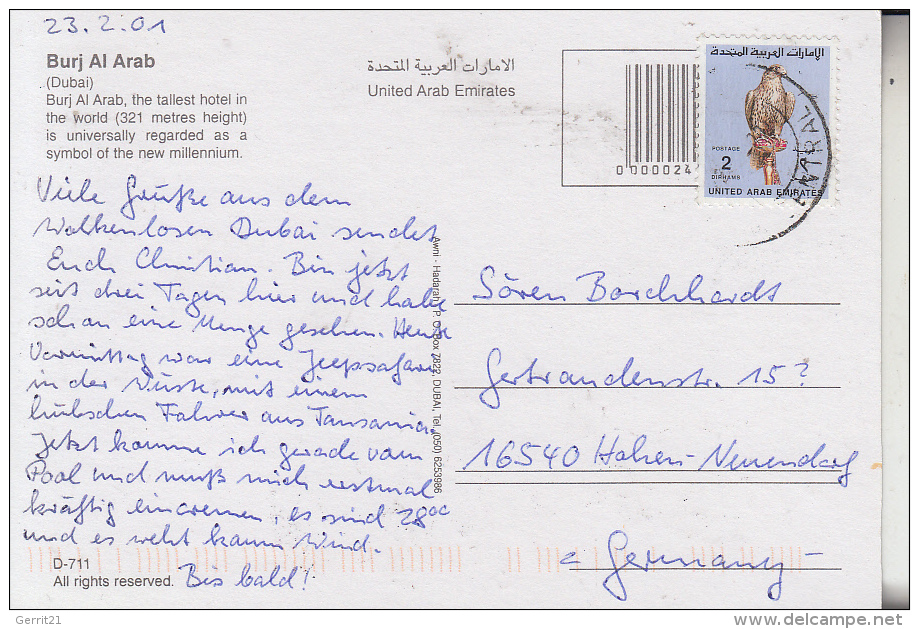 23.2.01
Burj Al Arab
(Dubai)
Burj Al Arab, the tallest hotel in
the world (321 metres height)
is universally regarded as a
symbol of the new millennium.
الامارات العربية المتحدة
United Arab Emirates
0 000024
الإمارات العربية المتحدة
POSTAGE
2
DIRHAMS
UNITED ARAB EMIRATES
NTRAL
Viele Grüße aus dem
Wolkenlosen Dubai sendet
Euch Christian. Bin jetzt
seit drei Tagen hier und habe
schon eine Menge gesehen. Heute
Vormittag war eine Jeepsafari
in der Wüste, mit einem
hübschen Fahrer aus Tansania.
Jetzt komme ich gerade vom
Pool und muß mich erstmal
kräftig eincremen, es sind 28°C
und es weht kaum Wind.
Bis bald!
D-711
All rights reserved.
Awni - Hadarah P. O. Box 7822, DUBAI, Tel. (050) 6253986
Sören Borchhardt
Gertraudenstr. 15?
16540 Hohen-Neuendorf
Germany
Gerrit21
www.delcampe.net